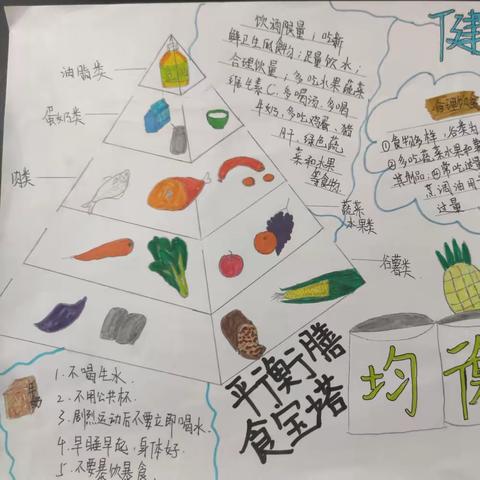 饮酒限量，吃新
鲜卫生瓜食物；足量饮水；
合理饮量，多吃水果蔬菜
维生素C，多喝汤，多喝
牛奶，多吃鸡蛋、猪
肝、绿色蔬
菜和水果
等食物.
健
合理饮食
①食物多样，谷类为
②多吃蔬菜水果和薯
其制品；④常吃适量
烹调油用
过量
油脂类
蛋奶类
肉类
蔬菜
水果类
谷薯类
平衡膳
食宝塔
均衡
1.不喝生水.
2.不用公共杯.
3.剧烈运动后不要立即喝水.
4.早睡早起，身体好.
5.不要暴饮暴食.